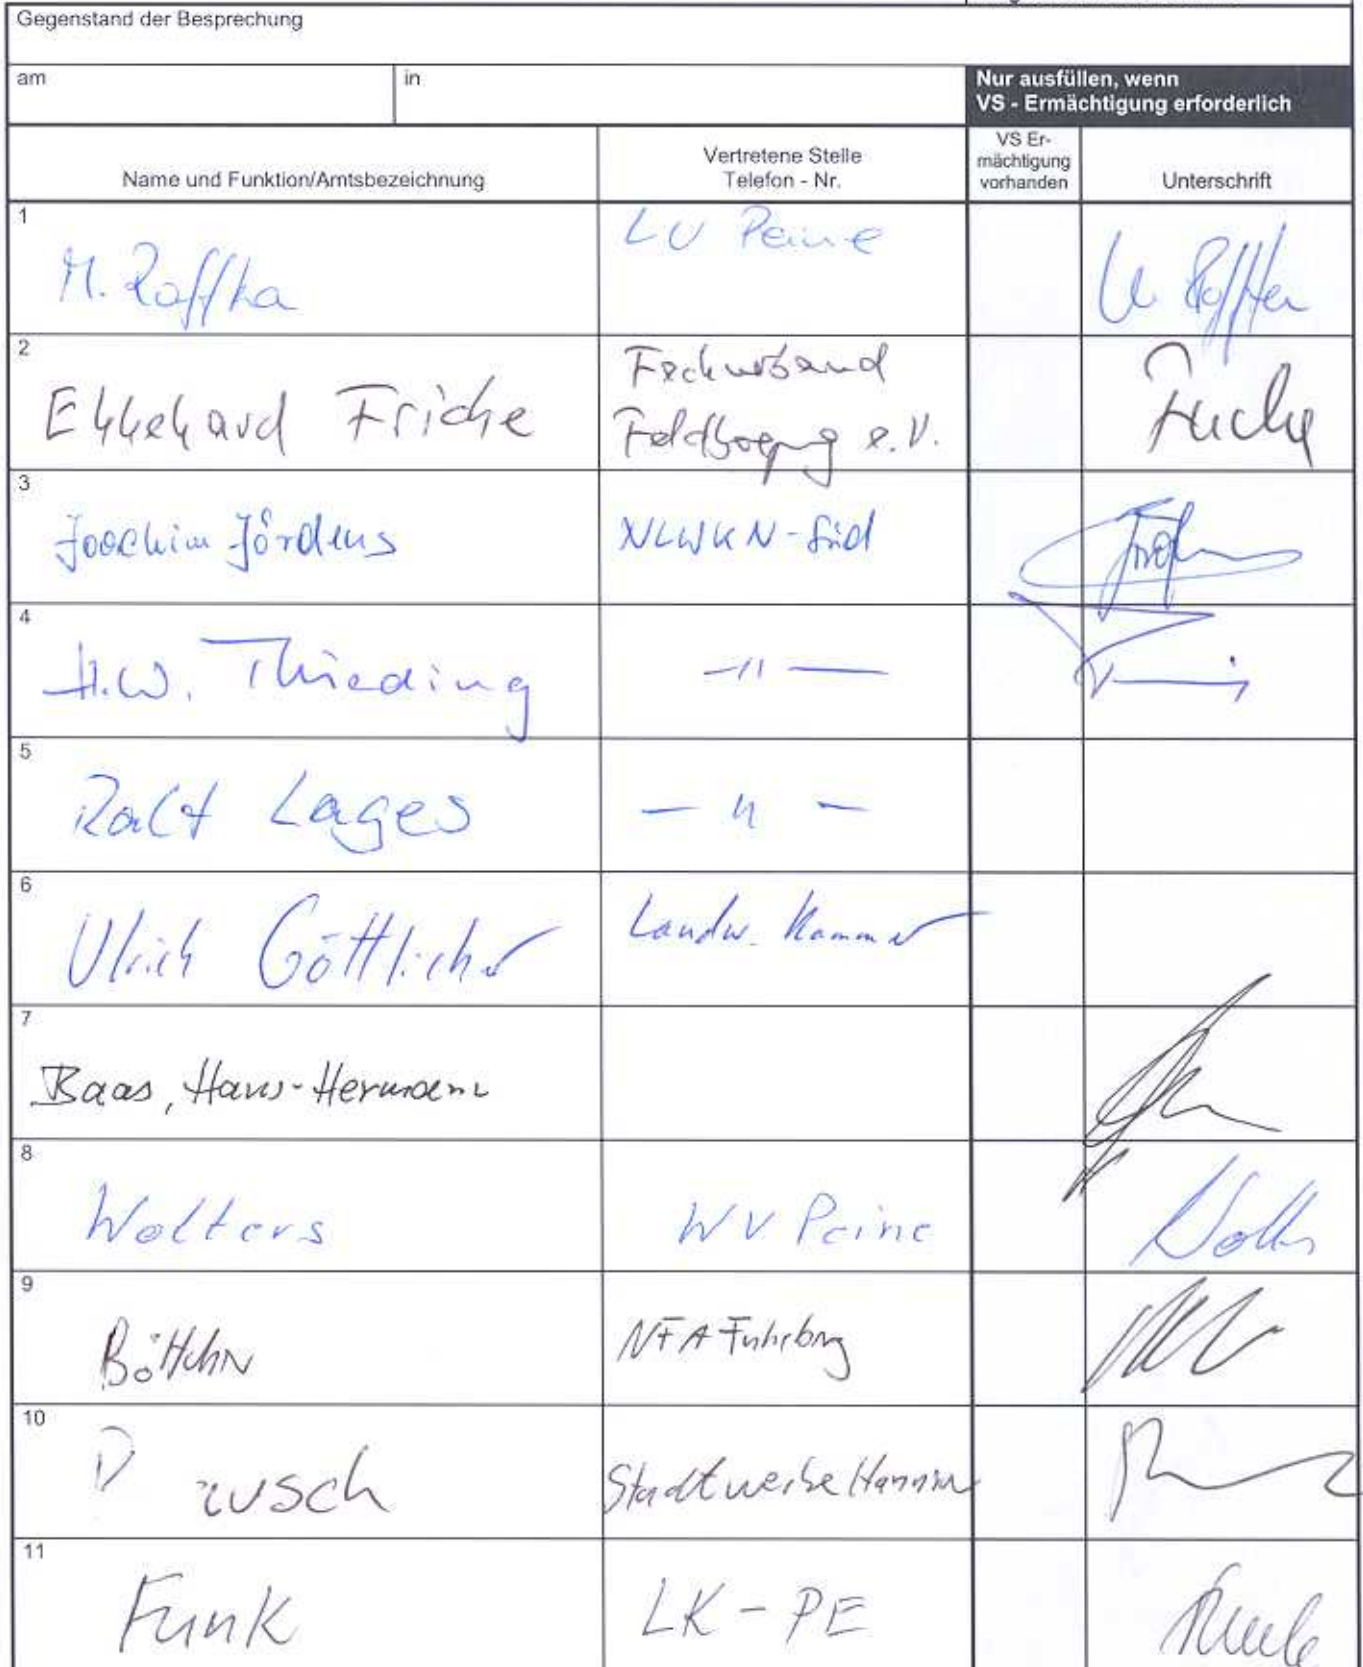 Gegenstand der Besprechung
am
in
Nur ausfüllen, wenn
VS - Ermächtigung erforderlich
Name und Funktion/Amtsbezeichnung
Vertretene Stelle
Telefon - Nr.
VS Er-
mächtigung
vorhanden
Unterschrift
1
M. Raffka
LV Peine
2
Ekkehard Fricke
Fachverband
Feldberegnung e.V.
3
Joachim Jördens
NLWKN-Süd
4
H.W. Thieding
-"-
5
Ralf Lages
-"-
6
Ulrich Göttlicher
Landw. Kammer
7
Baas, Hans-Hermann
8
Wolters
WV Peine
9
Böttcher
NFA Fuhrberg
10
Stadtwerke Hannover
11
Funk
LK-PE